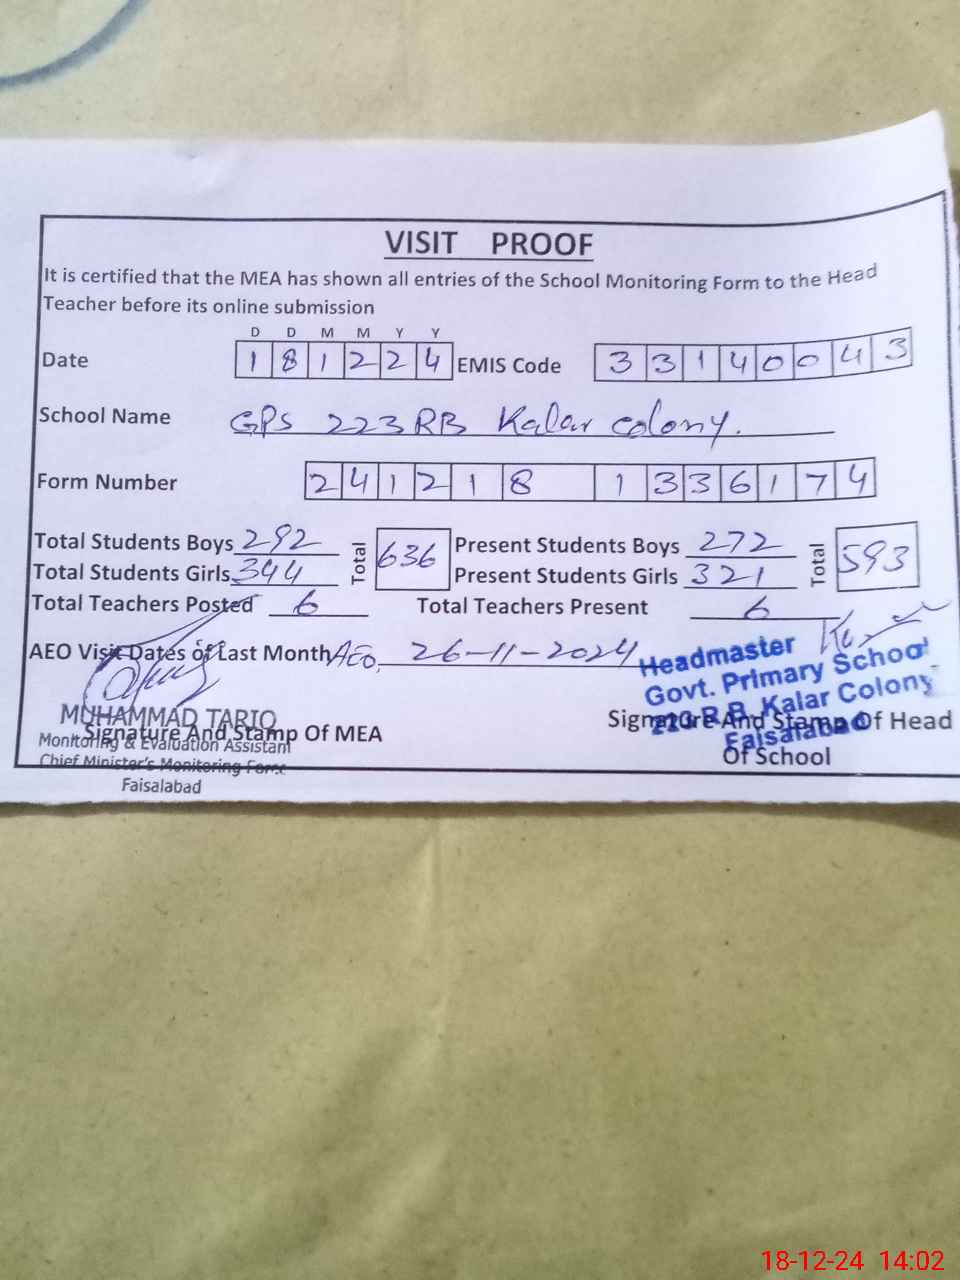 VISIT PROOF
It is certified that the MEA has shown all entries of the School Monitoring Form to the Head
Teacher before its online submission
D D M M Y Y
Date 1 8 1 2 2 4 EMIS Code 3 3 1 4 0 0 4 3
School Name GPS 223 RB Kalar colony.
Form Number 2 4 1 2 1 8 1 3 3 6 1 7 4
Total Students Boys 292 Total 636 Present Students Boys 272 Total 593
Total Students Girls 344 Present Students Girls 321
Total Teachers Posted 6 Total Teachers Present 6
AEO Visit Dates of Last Month AEO, 26-11-2024
Headmaster
Govt. Primary School
R.B. Kalar Colony
Faisalabad
MUHAMMAD TARIQ
Signature And Stamp Of MEA
Monitoring & Evaluation Assistant
Chief Minister's Monitoring Force
Faisalabad
Signature And Stamp Of Head
Of School
18-12-24 14:02